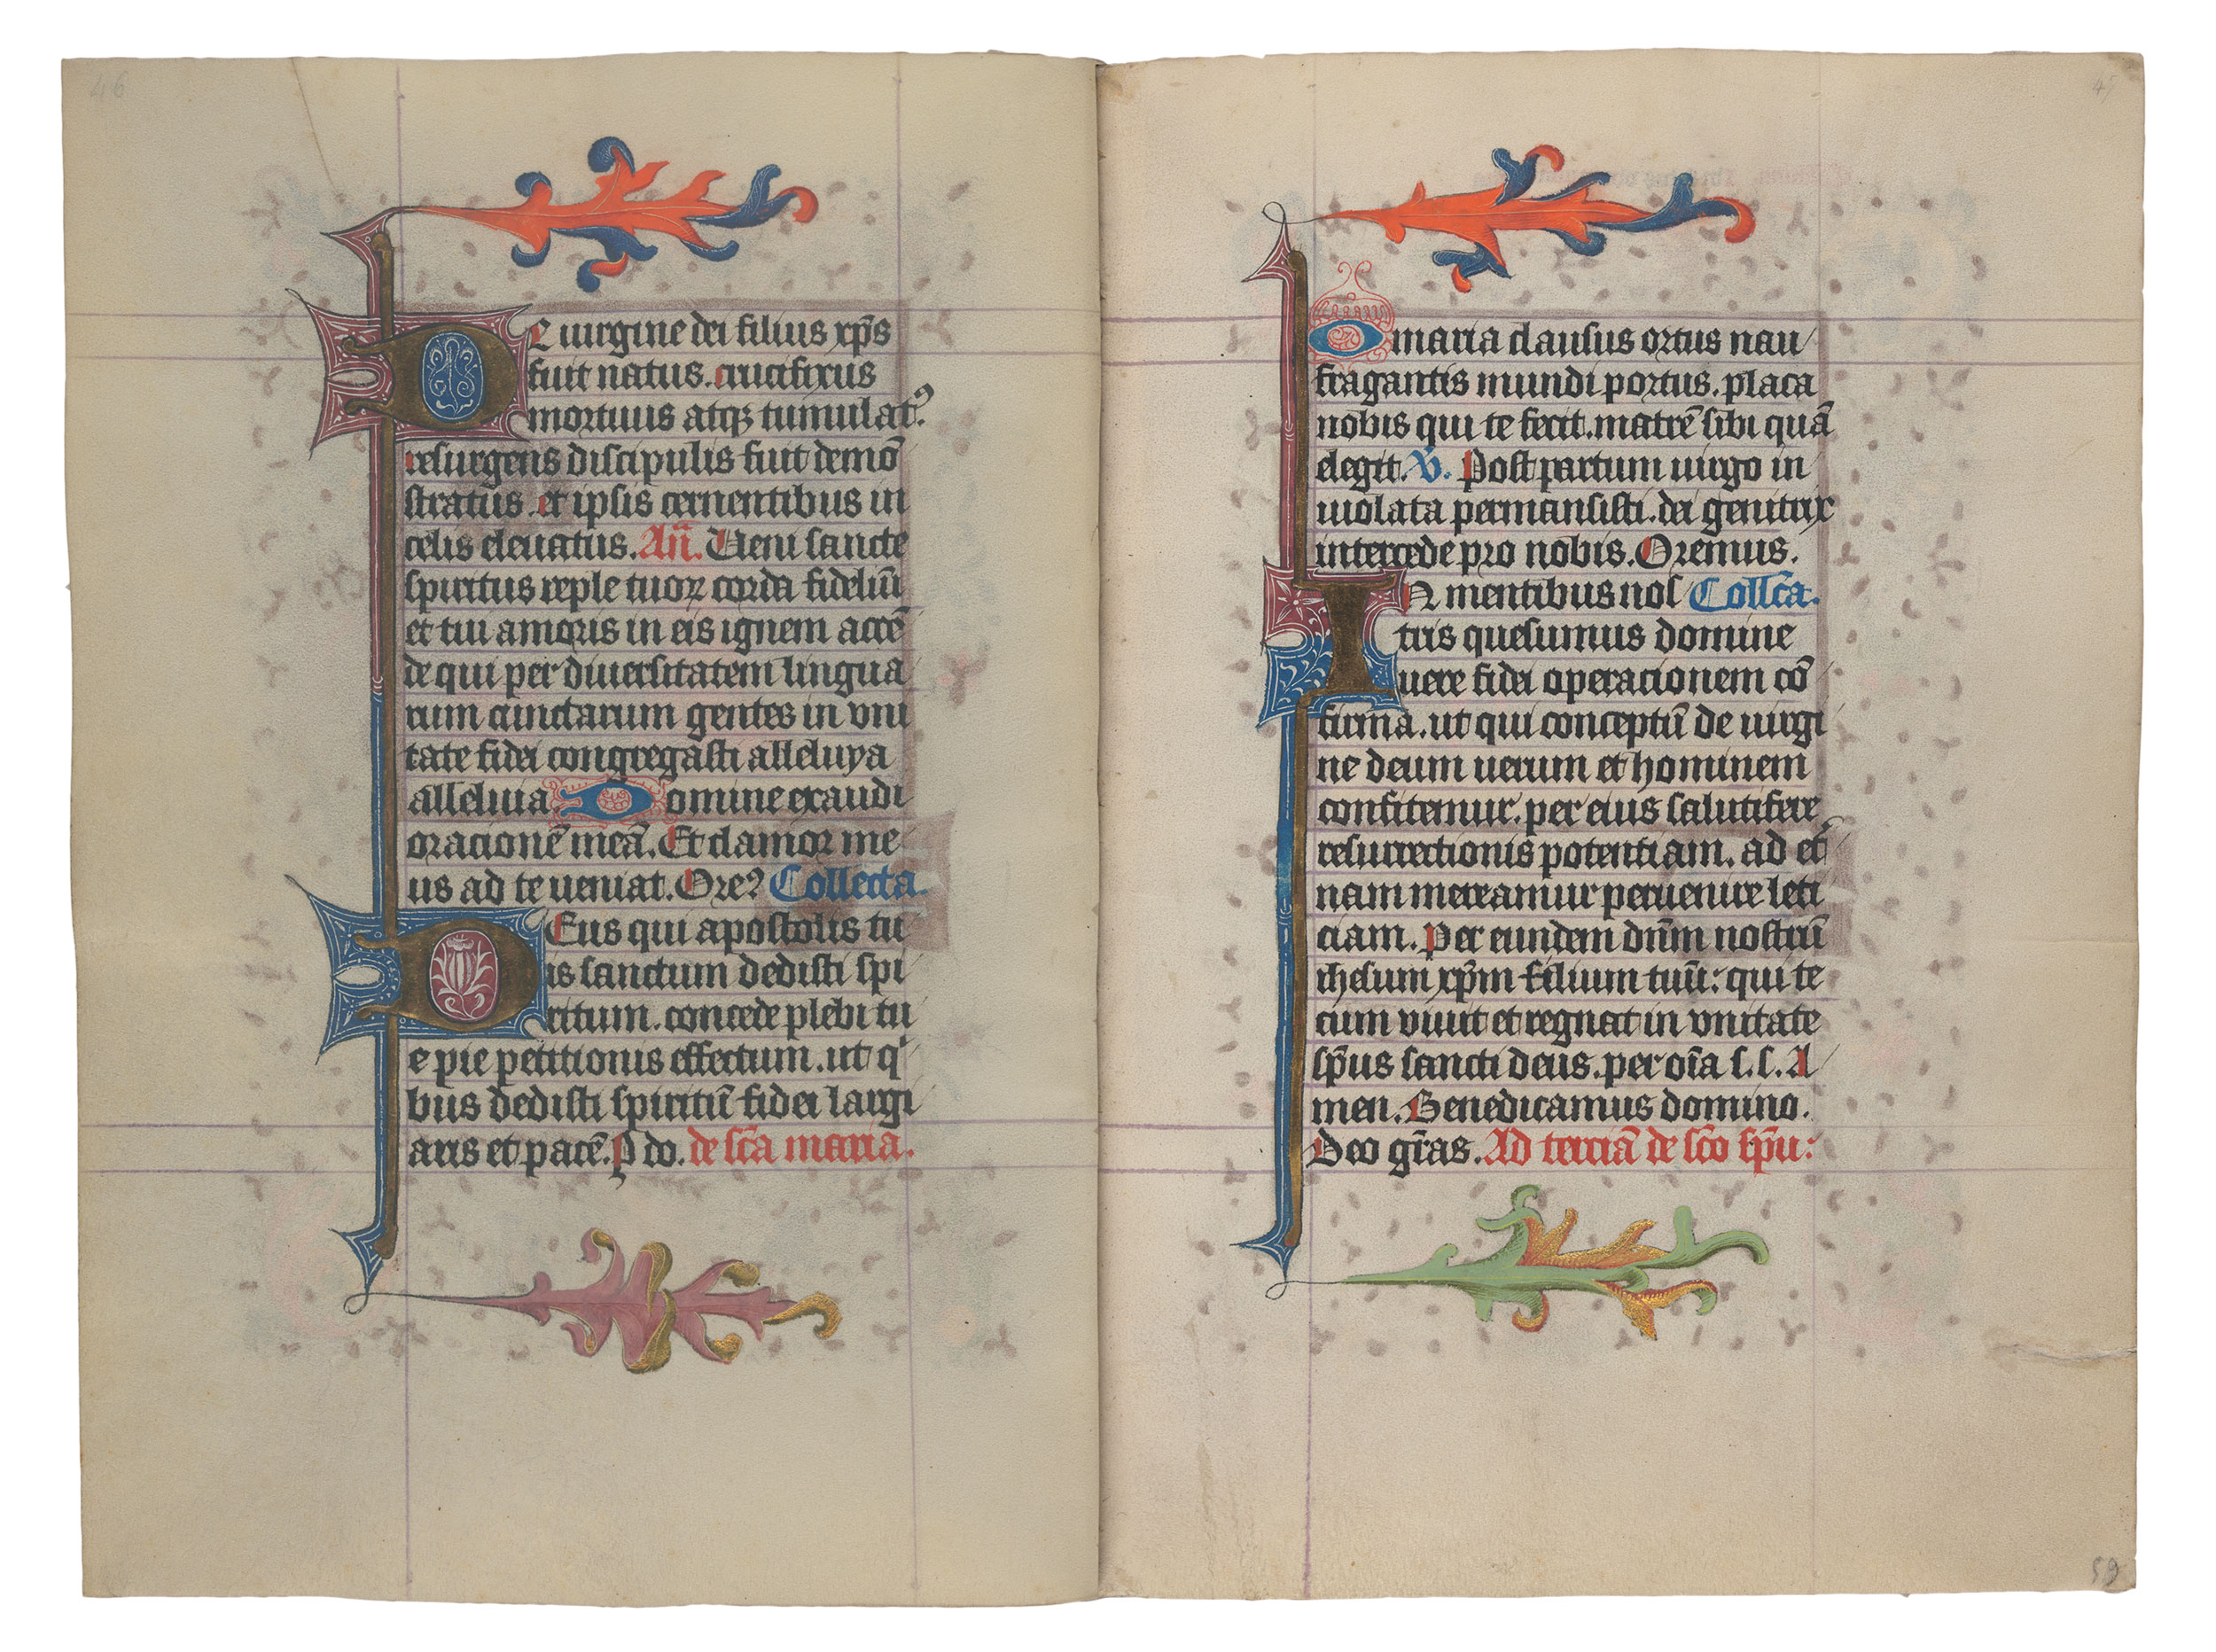 46
De uirgine dei filius xp̄s
fuit natus. crucifixus
mortuus atqꝫ tumulatꝰ
resurgens discipulis fuit demō
stratus. et ipsis cernentibus in
celis eleuatus. An̄. Ueni sancte
spiritus reple tuoꝝ corda fideliū
et tui amoris in eis ignem accē
de qui per diuersitatem lingua
rum cunctarum gentes in vni
tate fidei congregasti alleluya
alleluia. Domine exaudi
oracionē meā. Et clamor me
us ad te ueniat. Oreꝰ Collecta.
DEus qui apostolis tu
is sanctum dedisti spi
ritum. concede plebi tu
e pie petitionis effectum. ut qͥ
bus dedisti spiritū fidei largi
aris et pacē. P do. de sc̄a maria.
O maria clausus ortus nau
fragantis mundi portus. placa
nobis qui te fecit. matrē sibi quā
elegit. V. Post partum uirgo in
uiolata permansisti. dei genitrix
intercede pro nobis. Oremus.
IN mentibus nos Coll̄ca.
tris quesumus domine
uere fidei operacionem cō
firma. ut qui conceptū de uirgi
ne deum uerum et hominem
confitemur. per eius salutifere
resurrectionis potentiam. ad et̄
nam mereamur peruenire leti
ciam. Per eundem dn̄m nostrū
ihesum xp̄m filium tuū: qui te
cum viuit et regnat in vnitate
sp̄us sancti deus. per oīa s. s. A
men. Benedicamus domino.
Deo gr̄as. Ad terciā de sc̄o sp̄u:
59